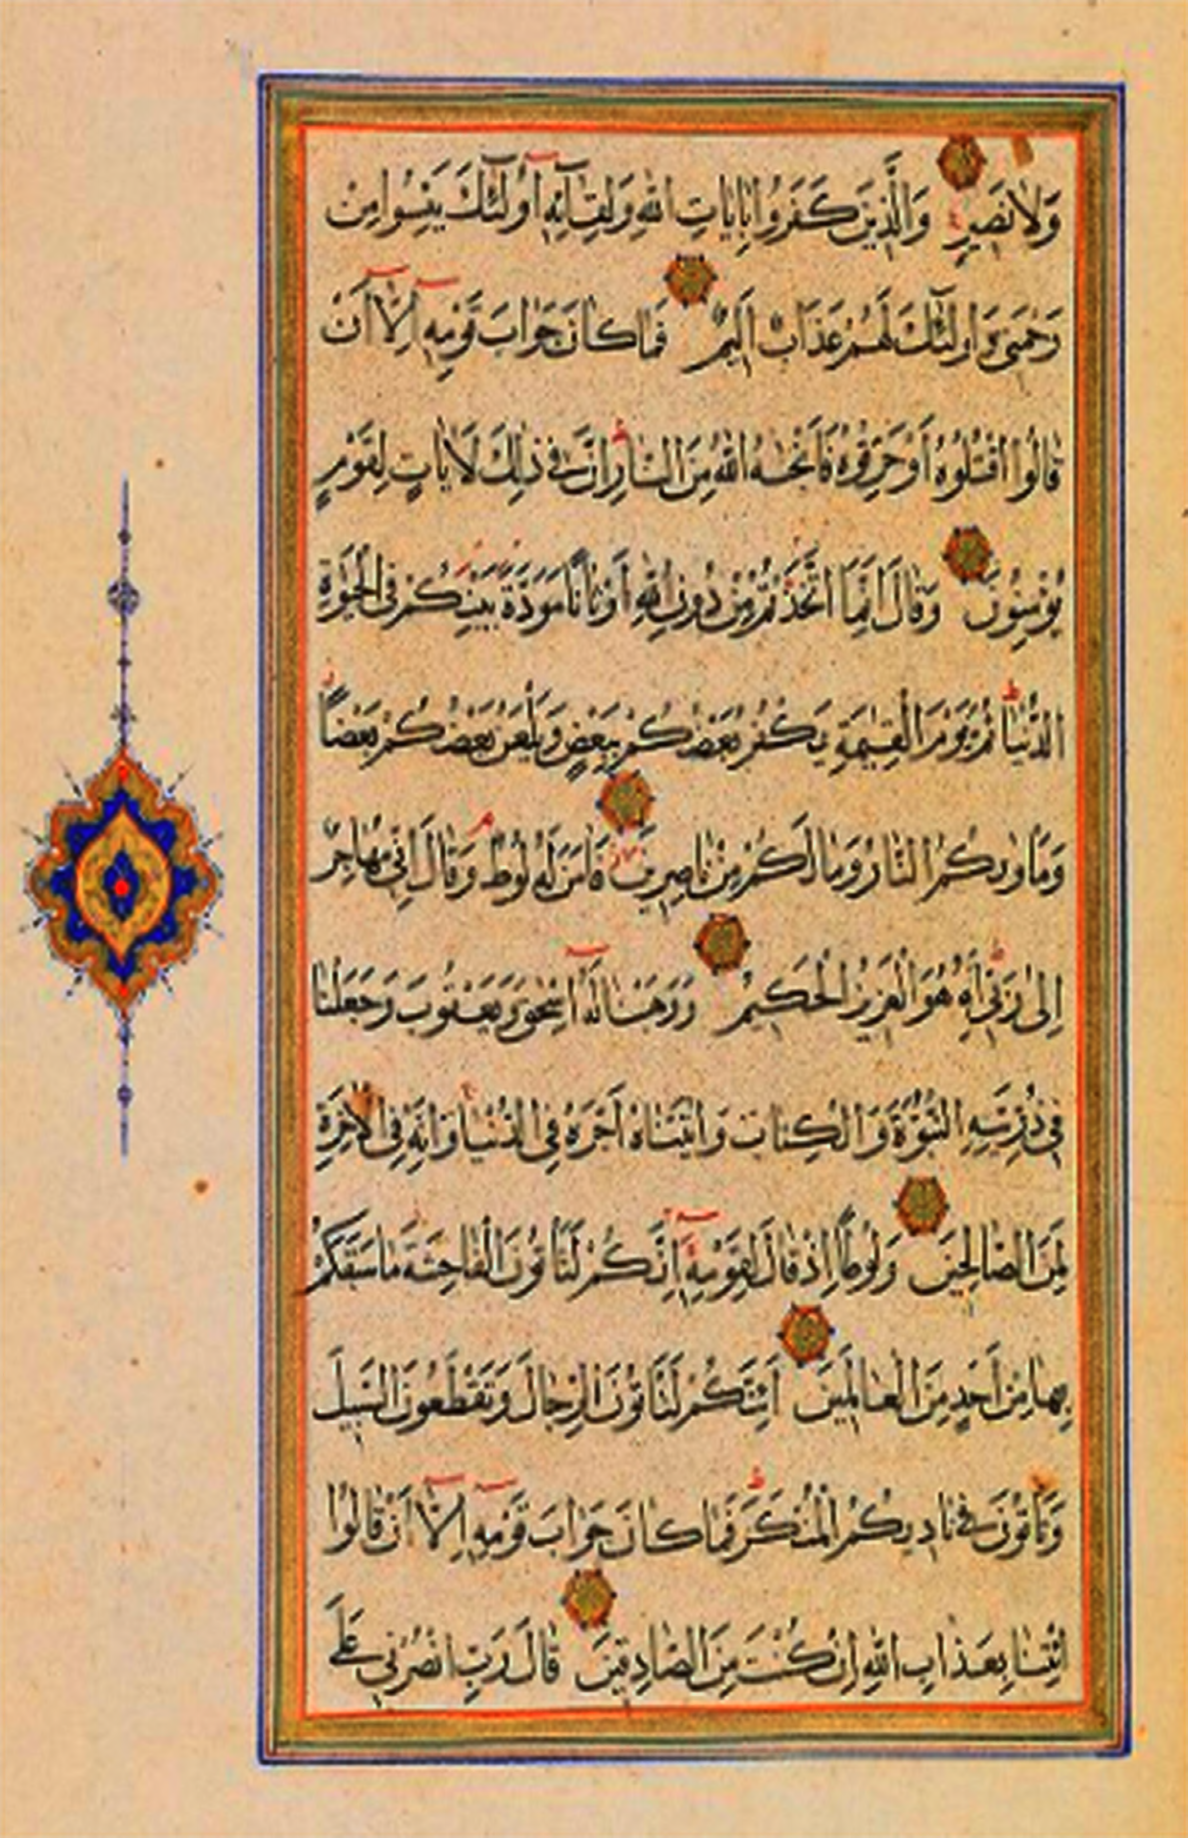 وَلَا نَصِيرٍ وَالَّذِينَ كَفَرُوا بِاٰيَاتِ اللّٰهِ وَلِقَآئِهِ أُولٰٓئِكَ يَئِسُوا مِنْ
رَحْمَتِي وَاُولٰٓئِكَ لَهُمْ عَذَابٌ اَلِيمٌ فَمَا كَانَ جَوَابَ قَوْمِهِ اِلَّآ اَنْ
قَالُوا اقْتُلُوهُ اَوْ حَرِّقُوهُ فَاَنْجٰهُ اللّٰهُ مِنَ النَّارِ اِنَّ فِي ذٰلِكَ لَاٰيَاتٍ لِقَوْمٍ
يُؤْمِنُونَ وَقَالَ اِنَّمَا اتَّخَذْتُمْ مِنْ دُونِ اللّٰهِ اَوْثَانًا مَوَدَّةَ بَيْنِكُمْ فِي الْحَيٰوةِ
الدُّنْيَا ثُمَّ يَوْمَ الْقِيٰمَةِ يَكْفُرُ بَعْضُكُمْ بِبَعْضٍ وَيَلْعَنُ بَعْضُكُمْ بَعْضًا
وَمَاْوٰىكُمُ النَّارُ وَمَا لَكُمْ مِنْ نَاصِرِينَ فَاٰمَنَ لَهُ لُوطٌ وَقَالَ اِنِّي مُهَاجِرٌ
اِلٰى رَبِّي اِنَّهُ هُوَ الْعَزِيزُ الْحَكِيمُ وَوَهَبْنَا لَهُٓ اِسْحٰقَ وَيَعْقُوبَ وَجَعَلْنَا
فِي ذُرِّيَّتِهِ النُّبُوَّةَ وَالْكِتَابَ وَاٰتَيْنَاهُ اَجْرَهُ فِي الدُّنْيَا وَاِنَّهُ فِي الْاٰخِرَةِ
لَمِنَ الصَّالِحِينَ وَلُوطًا اِذْ قَالَ لِقَوْمِهِٓ اِنَّكُمْ لَتَاْتُونَ الْفَاحِشَةَ مَا سَبَقَكُمْ
بِهَا مِنْ اَحَدٍ مِنَ الْعَالَمِينَ اَئِنَّكُمْ لَتَاْتُونَ الرِّجَالَ وَتَقْطَعُونَ السَّبِيلَ
وَتَاْتُونَ فِي نَادِيكُمُ الْمُنْكَرَ فَمَا كَانَ جَوَابَ قَوْمِهِٓ اِلَّآ اَنْ قَالُوا
ائْتِنَا بِعَذَابِ اللّٰهِ اِنْ كُنْتَ مِنَ الصَّادِقِينَ قَالَ رَبِّ انْصُرْنِي عَلَى